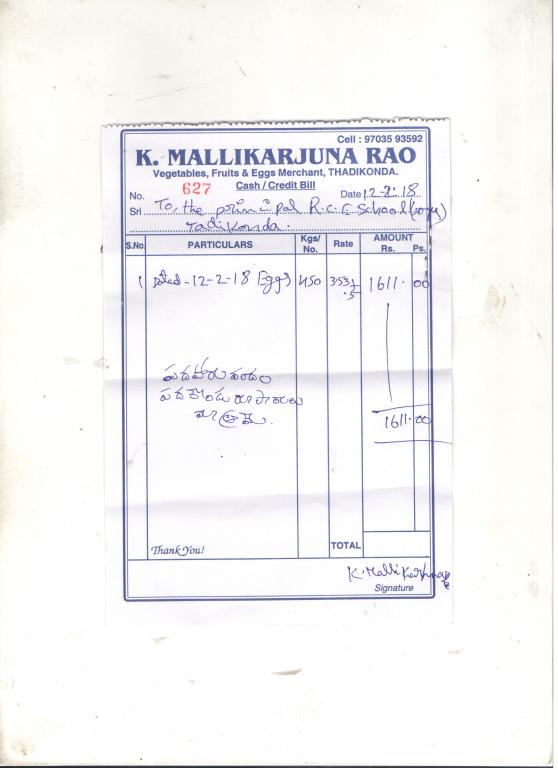 Cell : 97035 93592
K. MALLIKARJUNA RAO
Vegetables, Fruits & Eggs Merchant, THADIKONDA.
No. 627 Cash / Credit Bill Date 12-2-18
Sri To, the principal R.C.E School (Boys)
Tadikonda.
S.No. PARTICULARS Kgs/ No. Rate AMOUNT Rs. Ps.
1 Dated - 12-2-18 Eggs 450 1611. 00
పదహారు వందల
పదకొండు రూపాయలు
మాత్రమే.
1611. 00
Thank You! TOTAL
K. Mallikarjuna
Signature